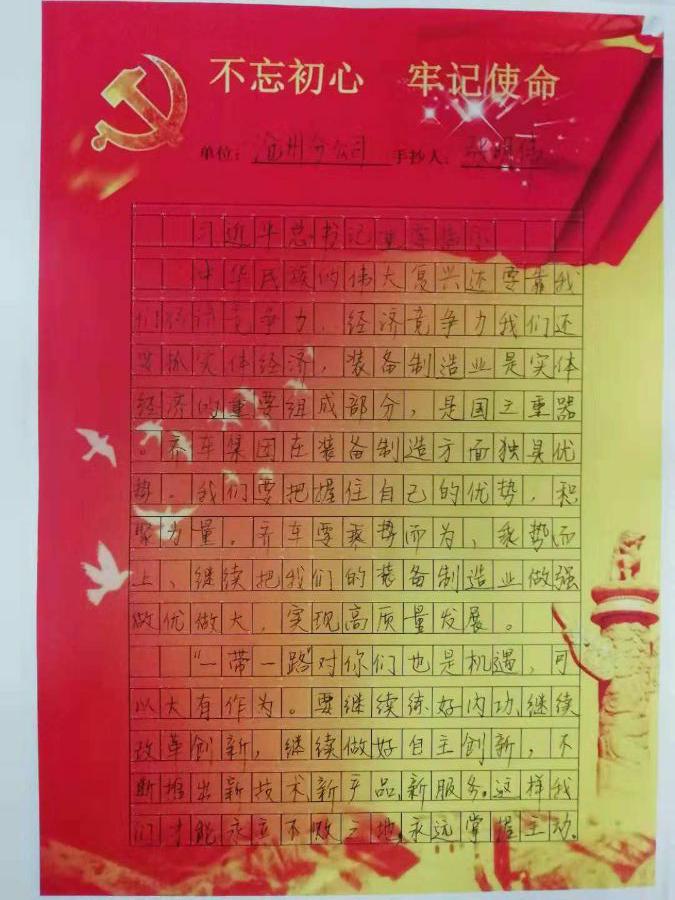 不忘初心 牢记使命
单位: 沧州分公司 手抄人: 张明伟
习近平总书记重要指示
中华民族的伟大复兴还要靠我
们经济竞争力，经济竞争力我们还
要抓实体经济，装备制造业是实体
经济的重要组成部分，是国之重器
。齐车集团在装备制造方面独具优
势。我们要把握住自己的优势，积
聚力量。齐车要乘势而为、乘势而
上、继续把我们的装备制造业做强
做优做大，实现高质量发展。
“一带一路”对你们也是机遇，可
以大有作为。要继续练好内功、继续
改革创新，继续做好自主创新，不
断推出新技术、新产品、新服务。这样我
们才能永立不败之地、永远掌握主动。